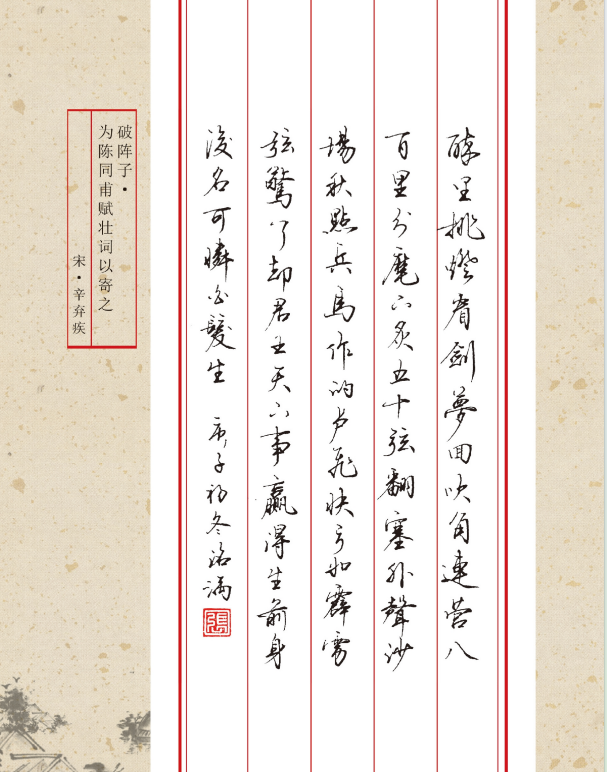 醉里挑燈看劍夢回吹角連营八
百里分麾下炙五十弦翻塞外聲沙
場秋點兵馬作的卢飛快弓如霹雳
弦驚了却君王天下事贏得生前身
後名可憐白髮生 庚子初冬洺满
張
破阵子·
为陈同甫赋壮词以寄之
宋·辛弃疾